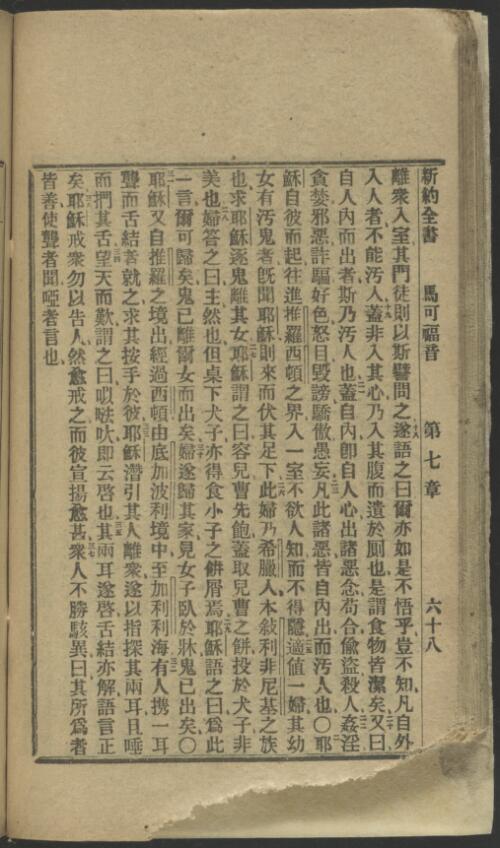 新約全書　馬可福音　第七章　六十八
離衆入室其門徒則以斯譬問之遂語之曰爾亦如是不悟乎豈不知凡自外
入人者不能汚人蓋非入其心乃入其腹而遺於厠也是謂食物皆潔矣又曰
自人內而出者斯乃汚人也蓋自內卽自人心出諸惡念苟合偸盜殺人姦淫
貪婪邪惡詐騙好色怒目毀謗驕傲愚妄凡此諸惡皆自內出而汚人也〇耶
穌自彼而起往進推羅西頓之界入一室不欲人知而不得隱適值一婦其幼
女有汚鬼者旣聞耶穌則來而伏其足下此婦乃希臘人本敍利非尼基之族
也求耶穌逐鬼離其女耶穌謂之曰容兒曹先飽蓋取兒曹之餅投於犬子非
美也婦答之曰主然也但桌下犬子亦得食小子之餅屑焉耶穌語之曰爲此
一言爾可歸矣鬼已離爾女而出矣婦遂歸其家見女子臥於牀鬼已出矣〇
耶穌又自推羅之境出經過西頓由底加波利境中至加利利海有人携一耳
聾而舌結者就之求其按手於彼耶穌潛引其人離衆遂以指探其兩耳且唾
而捫其舌望天而歎謂之曰㕧㳒㕤卽云啓也其兩耳遂啓舌結亦解語言正
矣耶穌戒衆勿以告人然愈戒之而彼宣揚愈甚衆人不勝駭異曰其所爲者
皆善使聾者聞啞者言也